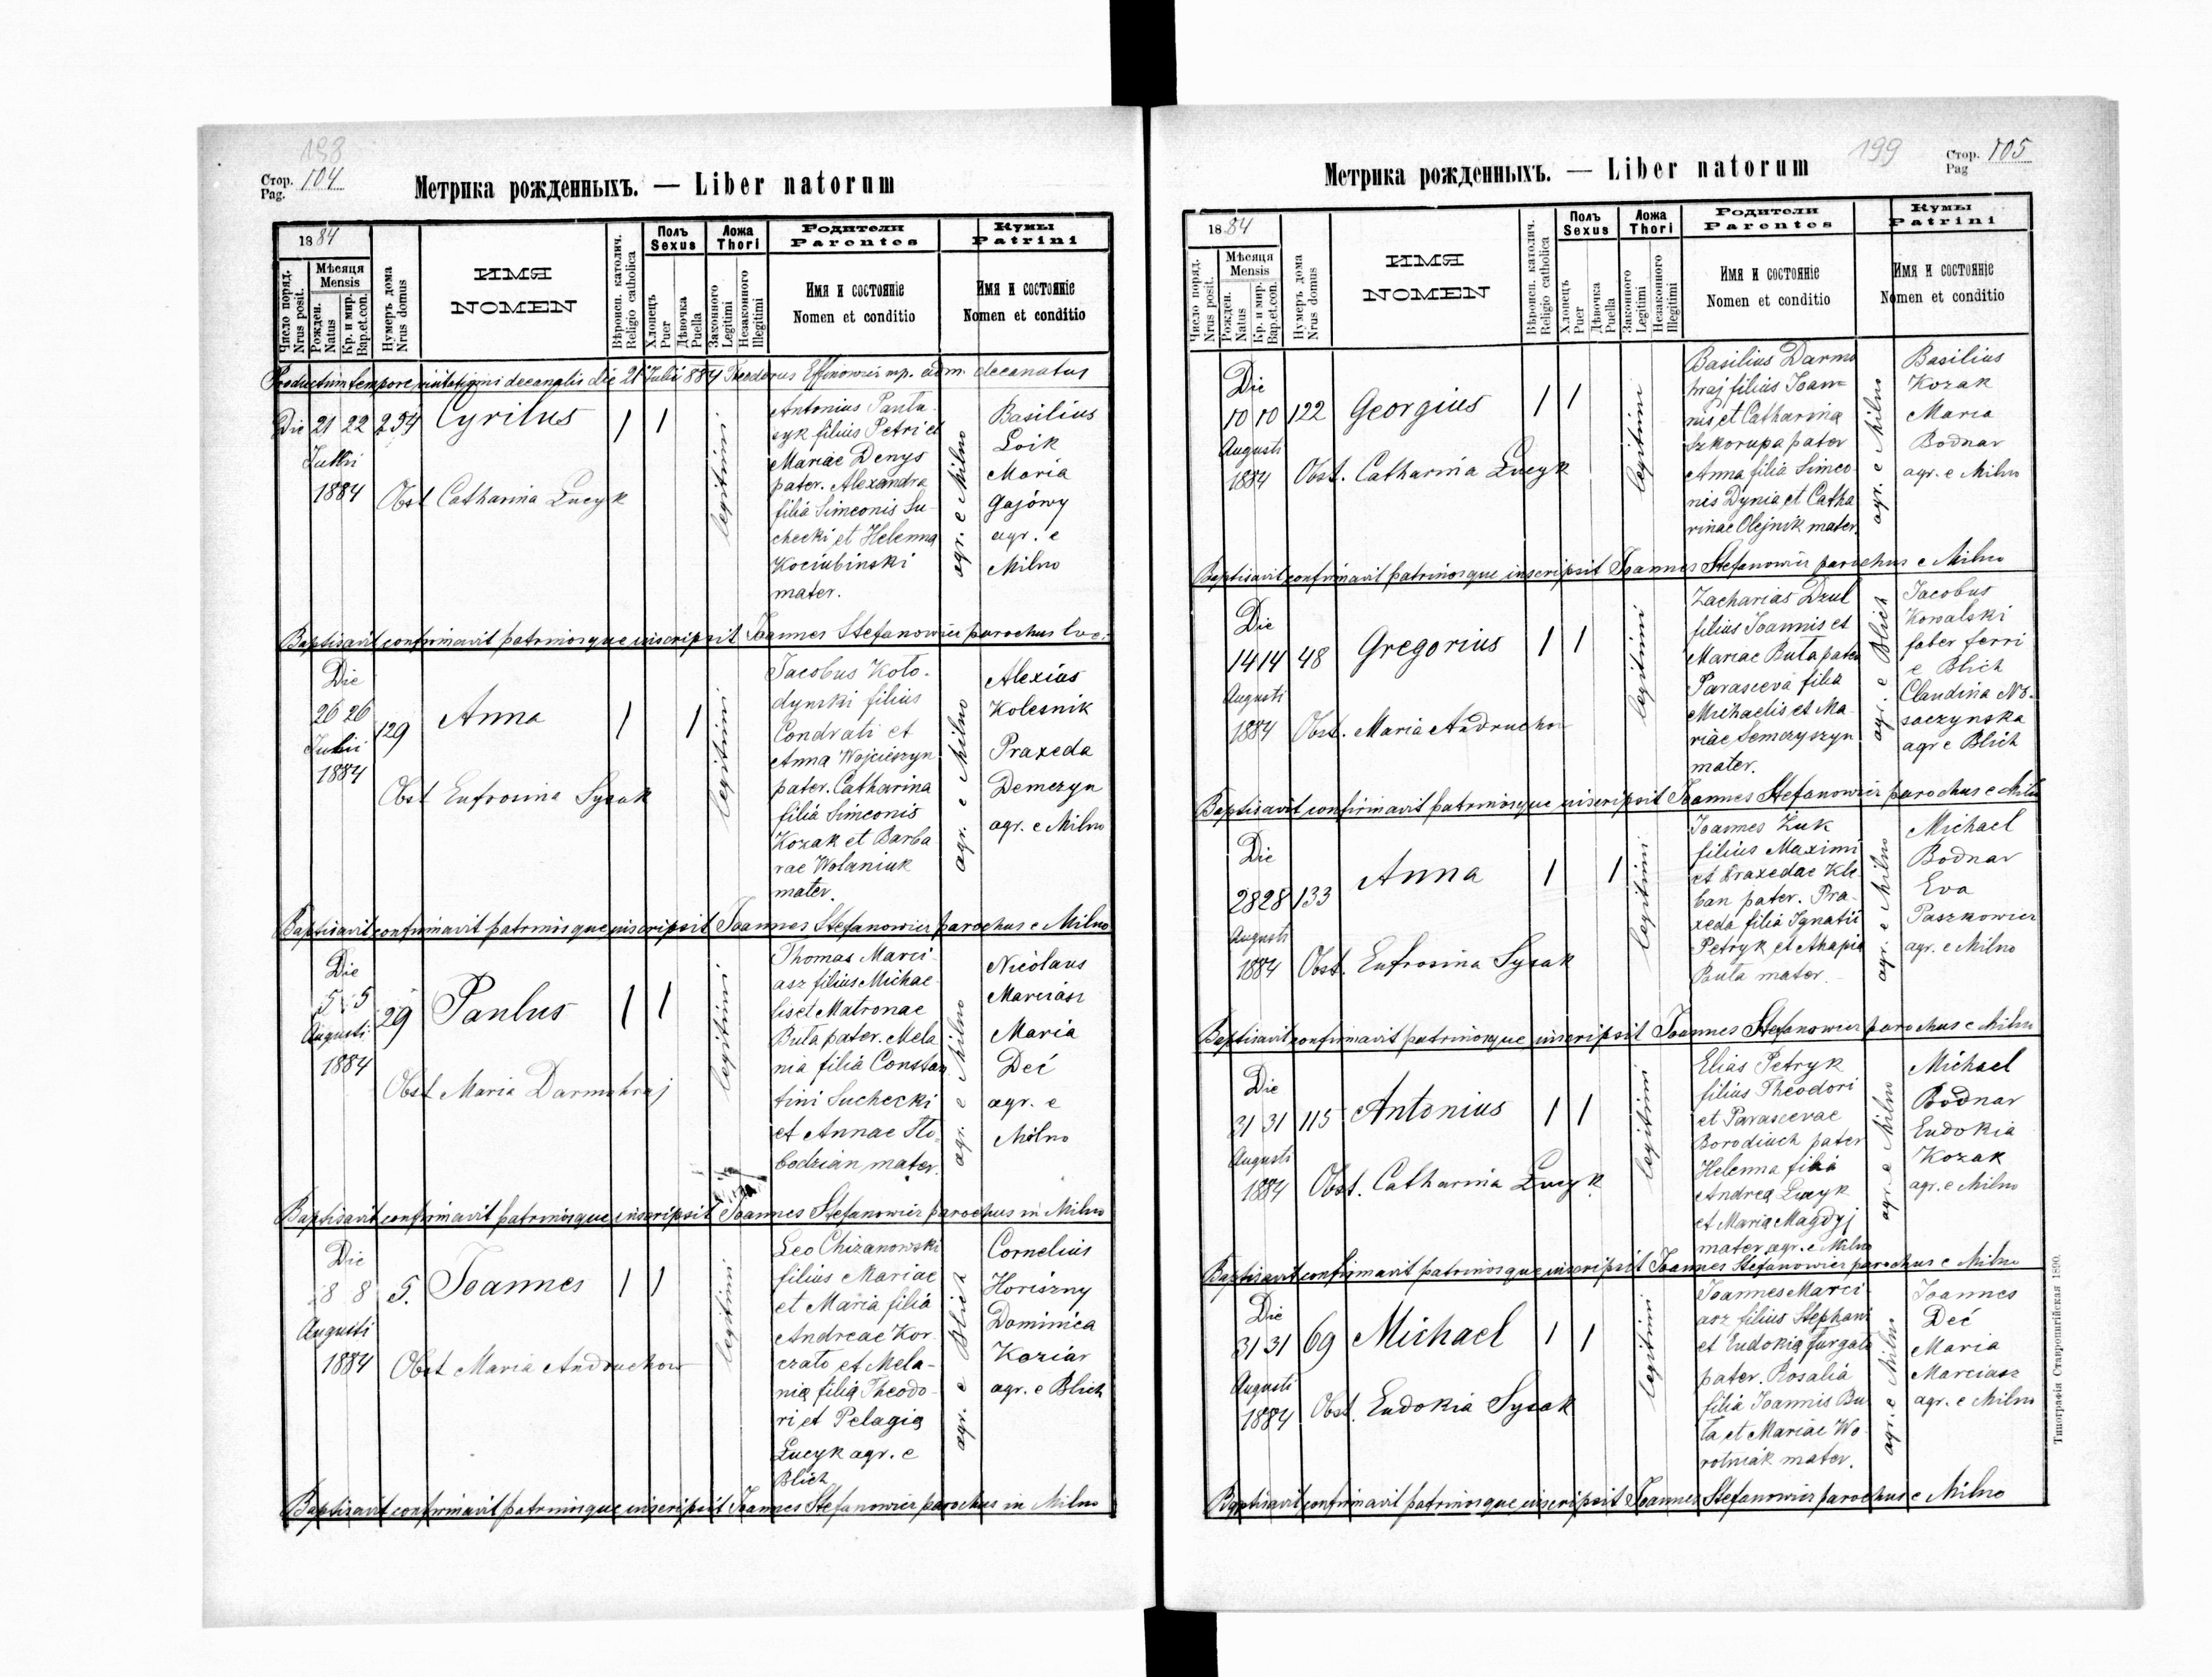 198
Стор. Pag. 104
Метрика рожденныхъ. — Liber natorum
1884
Число поряд. Nrus posit.
Мѣсяця Mensis
Рожден. Natus
Кр. и мир. Bap. et. con.
Нумеръ дома Nrus domus
ИМЯ NOMEN
Вѣроисп. католич. Religio catholica
Полъ Sexus
Хлопецъ Puer
Дѣвочка Puella
Ложа Thori
Законного Legitimi
Незаконного Illegitimi
Родители Parentes
Имя и состояніе Nomen et conditio
Кумы Patrini
Имя и состояніе Nomen et conditio
Productum tempore decanalis die 21 Julii 884 Theodorus mp. adm. decanatus
Die 21 22 254 Cyrilus 1 1
Julii
1884
Obst Catharina Lucyk
legitimi
Antonius Panta-
syk filius Petri et
Mariae Denys
pater. Alexandra
filia Simeonis Su-
checki et Helenna
Kociubinski
mater.
agr. e Milno
Basilius
Loik
Maria
Gajówy
agr. e
Milno
Baptisavit confirmavit patrinosque inscripsit Joannes Stefanowicz parochus loc.
Die
26 26 129 Anna 1 1
Julii
1884
Obst Eufrosina Sysak
legitimi
Jacobus Koło-
dynski filius
Condrati et
Anna Wojciszyn
pater. Catharina
filia Simeonis
Kozak et Barba
rae Wolaniuk
mater.
agr. e Milno
Alexius
Kolesnik
Praxeda
Demczyn
agr. e Milno
Baptisavit confirmavit patrinosque inscripsit Joannes Stefanowicz parochus e Milno
Die
5 5 29 Paulus 1 1
Augusti
1884
Obst Maria Darmohraj
legitimi
Thomas Marci-
asz filius Michae
lis et Matronae
Buta pater. Mela
nia filia Constan
tini Suchecki
et Annae Sło-
bodzian mater.
agr. e Milno
Nicolaus
Marciasz
Maria
Deć
agr. e
Milno
Baptisavit confirmavit patrinosque inscripsit Joannes Stefanowicz parochus in Milno
Die
8 8 5. Joannes 1 1
Augusti
1884
Obst Maria Andruchow
legitimi
Leo Chizanowski
filius Mariae
et Maria filia
Andreae Kor-
czato et Mela-
nia filia Theodo-
ri et Pelagia
Lucyk agr. e
Blich
agr. e Blich
Cornelius
Horiszny
Dominica
Koziar
agr. e Blich
Baptisavit confirmavit patrinosque inscripsit Joannes Stefanowicz parochus in Milno
199
Стор. Pag 105
Метрика рожденныхъ. — Liber natorum
1884
Число поряд. Nrus posit.
Мѣсяця Mensis
Рожден. Natus
Кр. и мир. Bap. et. con.
Нумеръ дома Nrus domus
ИМЯ NOMEN
Вѣроисп. католич. Religio catholica
Полъ Sexus
Хлопецъ Puer
Дѣвочка Puella
Ложа Thori
Законного Legitimi
Незаконного Illegitimi
Родители Parentes
Имя и состояніе Nomen et conditio
Кумы Patrini
Имя и состояніе Nomen et conditio
Die
10 10 122 Georgius 1 1
Augusti
1884
Obst. Catharina Lucyk
legitimi
Basilius Darmo
hraj filius Joan-
nis et Catharina
Szkorupa pater
Anna filia Simeo
nis Dynia et Catha
rinae Olejnik mater.
agr. e Milno
Basilius
Kozak
Maria
Bodnar
agr. e Milno
Baptisavit confirmavit patrinosque inscripsit Joannes Stefanowicz parochus e Milno
Die
14 14 48 Gregorius 1 1
Augusti
1884
Obst. Maria Andruchow
legitimi
Zacharias Dzul
filius Joannis et
Mariae Buta pater
Parasceva filia
Michaelis et Ma-
riae Semczyszyn
mater.
agr. e Blich
Jacobus
Kowalski
faber ferri
e Blich
Claudina No-
saczynska
agr e Blich
Baptisavit confirmavit patrinosque inscripsit Joannes Stefanowicz parochus e Milno
Die
28 28 133 Anna 1 1
Augusti
1884
Obst. Eufrosina Sysak
legitimi
Joannes Zuk
filius Maximi
et Praxedae Kle-
ban pater. Pra-
xeda filia Ignatii
Petryk et Ahapia
Buta mater.
agr. e Milno
Michael
Bodnar
Eva
Paszkowicz
agr. e Milno
Baptisavit confirmavit patrinosque inscripsit Joannes Stefanowicz parochus e Milno
Die
31 31 115 Antonius 1 1
Augusti
1884
Obst. Catharina Lucyk
legitimi
Elias Petryk
filius Theodori
et Parascevae
Borodiuch pater
Helenna filia
Andrea Lucyk
et Maria Magdyj
mater agr. e Milno
agr. e Milno
Michael
Bodnar
Eudokia
Kozak
agr. e Milno
Baptisavit confirmavit patrinosque inscripsit Joannes Stefanowicz parochus e Milno
Die
31 31 69 Michael 1 1
Augusti
1884
Obst. Eudokia Sysak
legitimi
Joannes Marci-
asz filius Stephani
et Eudokia Furgala
pater. Rosalia
filia Joannis Bu
ta et Mariae Wo-
rotniak mater.
agr. e Milno
Joannes
Deć
Maria
Marciasz
agr. e Milno
Baptisavit confirmavit patrinosque inscripsit Joannes Stefanowicz parochus e Milno
Типографія Ставропигійская 1890.